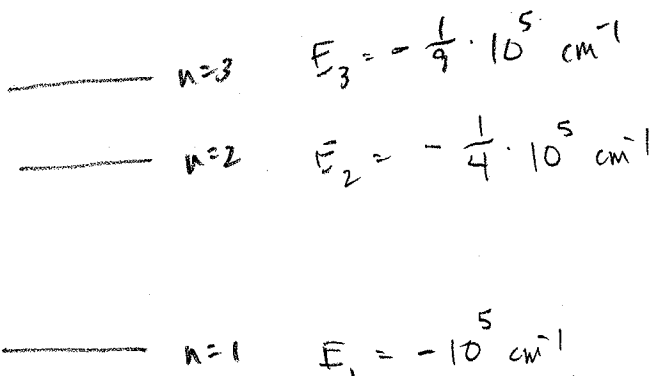 n=3 E₃ = - 1/9 · 10⁵ cm⁻¹
n=2 E₂ = - 1/4 · 10⁵ cm⁻¹
n=1 E₁ = - 10⁵ cm⁻¹